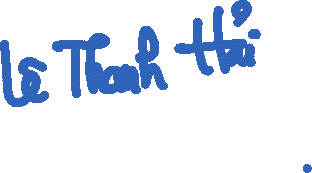 Lê Thanh Hải